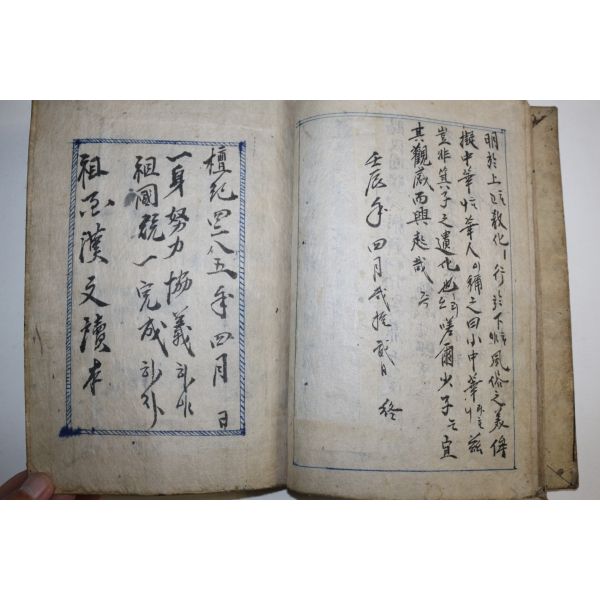 明於上 敎化ㅣ 行於下 風俗之美 侔
擬中華 華人이 稱之曰小中華 玆
豈非箕子之遺化也 嗟爾少子 宜
其觀感而興起哉
壬辰年 四月 貳拾貳日 終
檀紀四二八五年四月 日
一身努力協義하야
祖國統一完成하자
漢文讀本